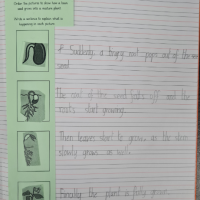 Order the pictures to show how a bean
and grows into a mature plant.
Write a sentence to explain what is
happening in each picture.
# Suddenly a tingey root pops out of the
seed
The rest of the seed falls off and the
roots start growing.
Then leaves start to grow, as the stem
slowly grows as well.
Finally the plant is fully grow.